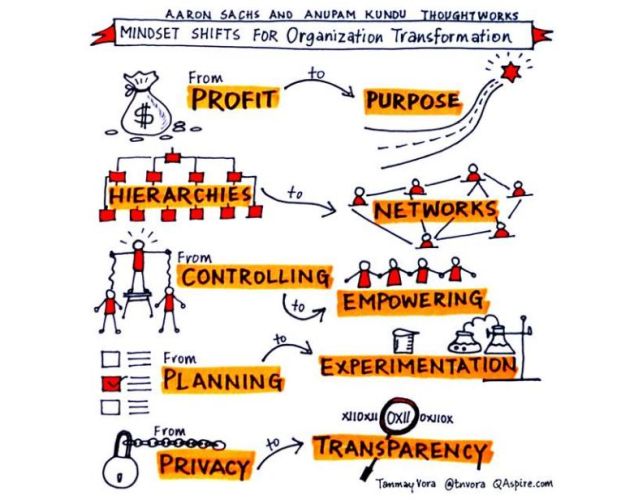 AARON SACHS AND ANUPAM KUNDU THOUGHTWORKS
MINDSET SHIFTS FOR Organization Transformation
From
PROFIT
to
PURPOSE
$
HIERARCHIES
to
NETWORKS
From
CONTROLLING
to
EMPOWERING
From
PLANNING
to
EXPERIMENTATION
From
PRIVACY
to
X110X11 OX11 OX110X
TRANSPARENCY
Tanmay Vora @tnvora QAspire.com